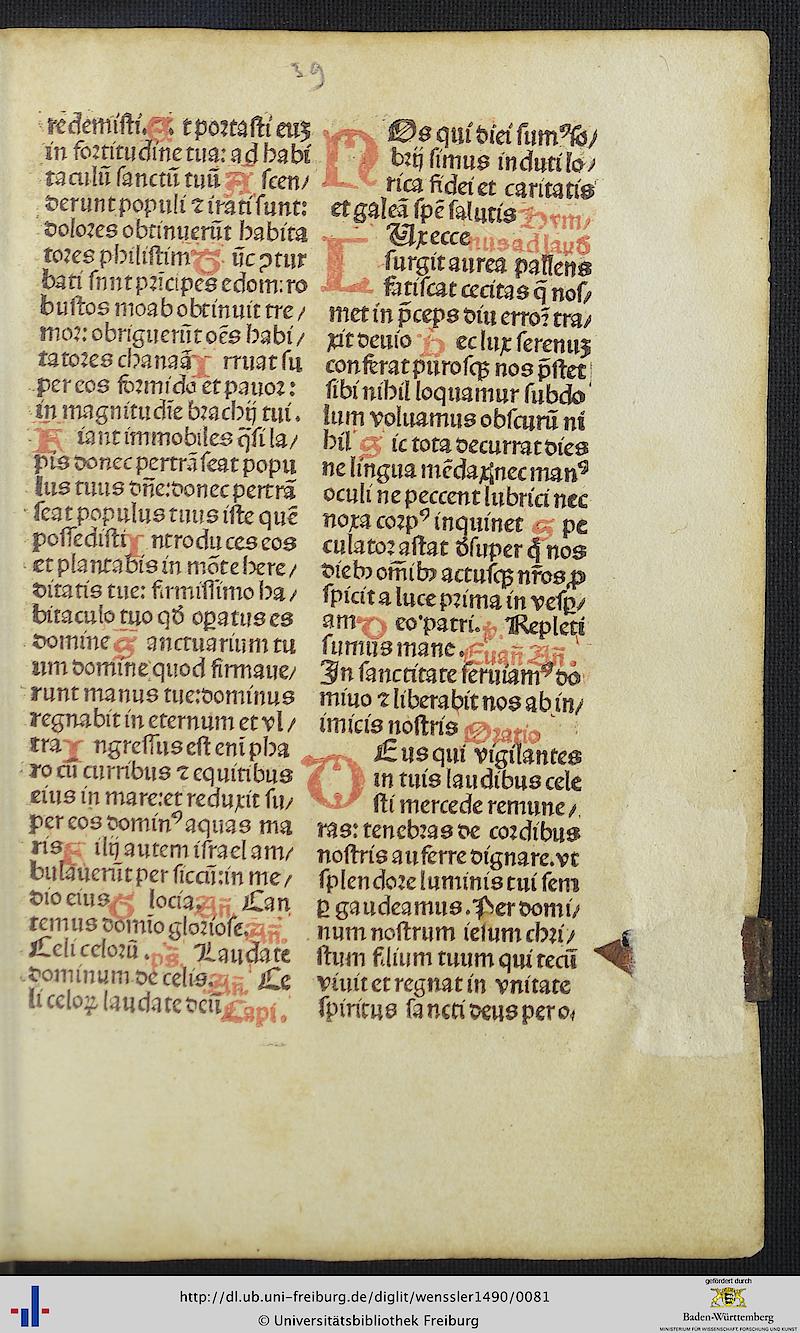 39
redemisti. E. t portasti euʒ
in fortitudine tua: ad habi
taculū sanctū tuū A scen/
derunt populi ⁊ irati sunt:
dolores obtinuerūt habita
tores philistim T ūc ↄtur
bati sunt prīcipes edom: ro
bustos moab obtinuit tre/
mor: obriguerūt oēs habi/
tatores chanaā I rruat su
per eos formido et pauor:
in magnitudīe brachij tui.
F iant immobiles q̄si la/
pis donec pertrāseat popu
lus tuus dn̄e: donec pertrā
seat populus tuus iste quē
possedisti I ntroduces eos
et plantabis in mōte here/
ditatis tue: firmissimo ha/
bitaculo tuo qd̄ oꝑatus es
domine S anctuarium tu
um domine quod firmaue/
runt manus tue: dominus
regnabit in eternum et vl/
tra I ngressus est enī pha
ro cū curribus ⁊ equitibus
eius in mare: et reduxit su/
per eos dominꝰ aquas ma
ris F ilij autem israel am/
bulauerūt per siccū: in me/
dio eius G locia. An̄. Can
temus domīo gloriose. An̄.
Celi celorū. ps̄. Laudate
dominum de celis. An̄. Ce
li celoꝝ laudate deū Capi.
NOs qui diei sumꝰ so/
brij simus induti lo/
rica fidei et caritatis
et galeā spē salutis Hym/
LUx ecce nus ad laud̄
surgit aurea pallens
fatiscat cecitas q̄ nos/
met in p̄ceps diu error tra/
xit deuio H ec lux serenuʒ
conferat purosqꝫ nos p̄stet
sibi nihil loquamur subdo
lum voluamus obscurū ni
hil S ic tota decurrat dies
ne lingua mēdax nec manꝰ
oculi ne peccent lubrici nec
noxa corpꝰ inquinet S pe
culator astat d̄super q̄ nos
diebꝫ om̄ibꝫ actusqꝫ nr̄os ꝓ
spicit a luce prima in vesꝑ/
am D eo patri. ꝟ. Repleti
sumus mane. Euan̄ An̄.
In sanctitate seruiamꝰ do
miuo ⁊ liberabit nos ab in/
imicis nostris Oratio
DEus qui vigilantes
in tuis laudibus cele
sti mercede remune/
ras: tenebras de cordibus
nostris auferre dignare. vt
splendore luminis tui sem
ꝑ gaudeamus. Per domi/
num nostrum iesum chri/
stum filium tuum qui tecū
viuit et regnat in vnitate
spiritus sancti deus per o/
http://dl.ub.uni-freiburg.de/diglit/wenssler1490/0081
© Universitätsbibliothek Freiburg
gefördert durch
Baden-Württemberg
MINISTERIUM FÜR WISSENSCHAFT, FORSCHUNG UND KUNST